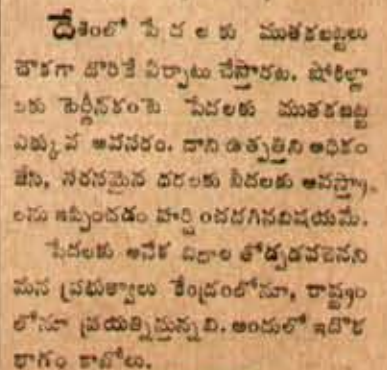 దేశంలో పేదలకు ముతకబట్టలు
చౌకగా దొరికే ఏర్పాటు చేస్తారట. షోకిల్లా
లకు టెర్లీన్‌కంటె పేదలకు ముతకబట్ట
ఎక్కువ అవసరం. దాని ఉత్పత్తిని అధికం
జేసి, సరసమైన ధరలకు పేదలకు ఆవస్త్రా
లను ఇప్పించడం హర్షించదగినవిషయమే.
పేదలకు అనేక విధాల తోడ్పడవలెనని
మన ప్రభుత్వాలు కేంద్రంలోనూ, రాష్ట్రం
లోనూ ప్రయత్నిస్తున్నవి. అందులో ఇదొక
భాగం కాబోలు.